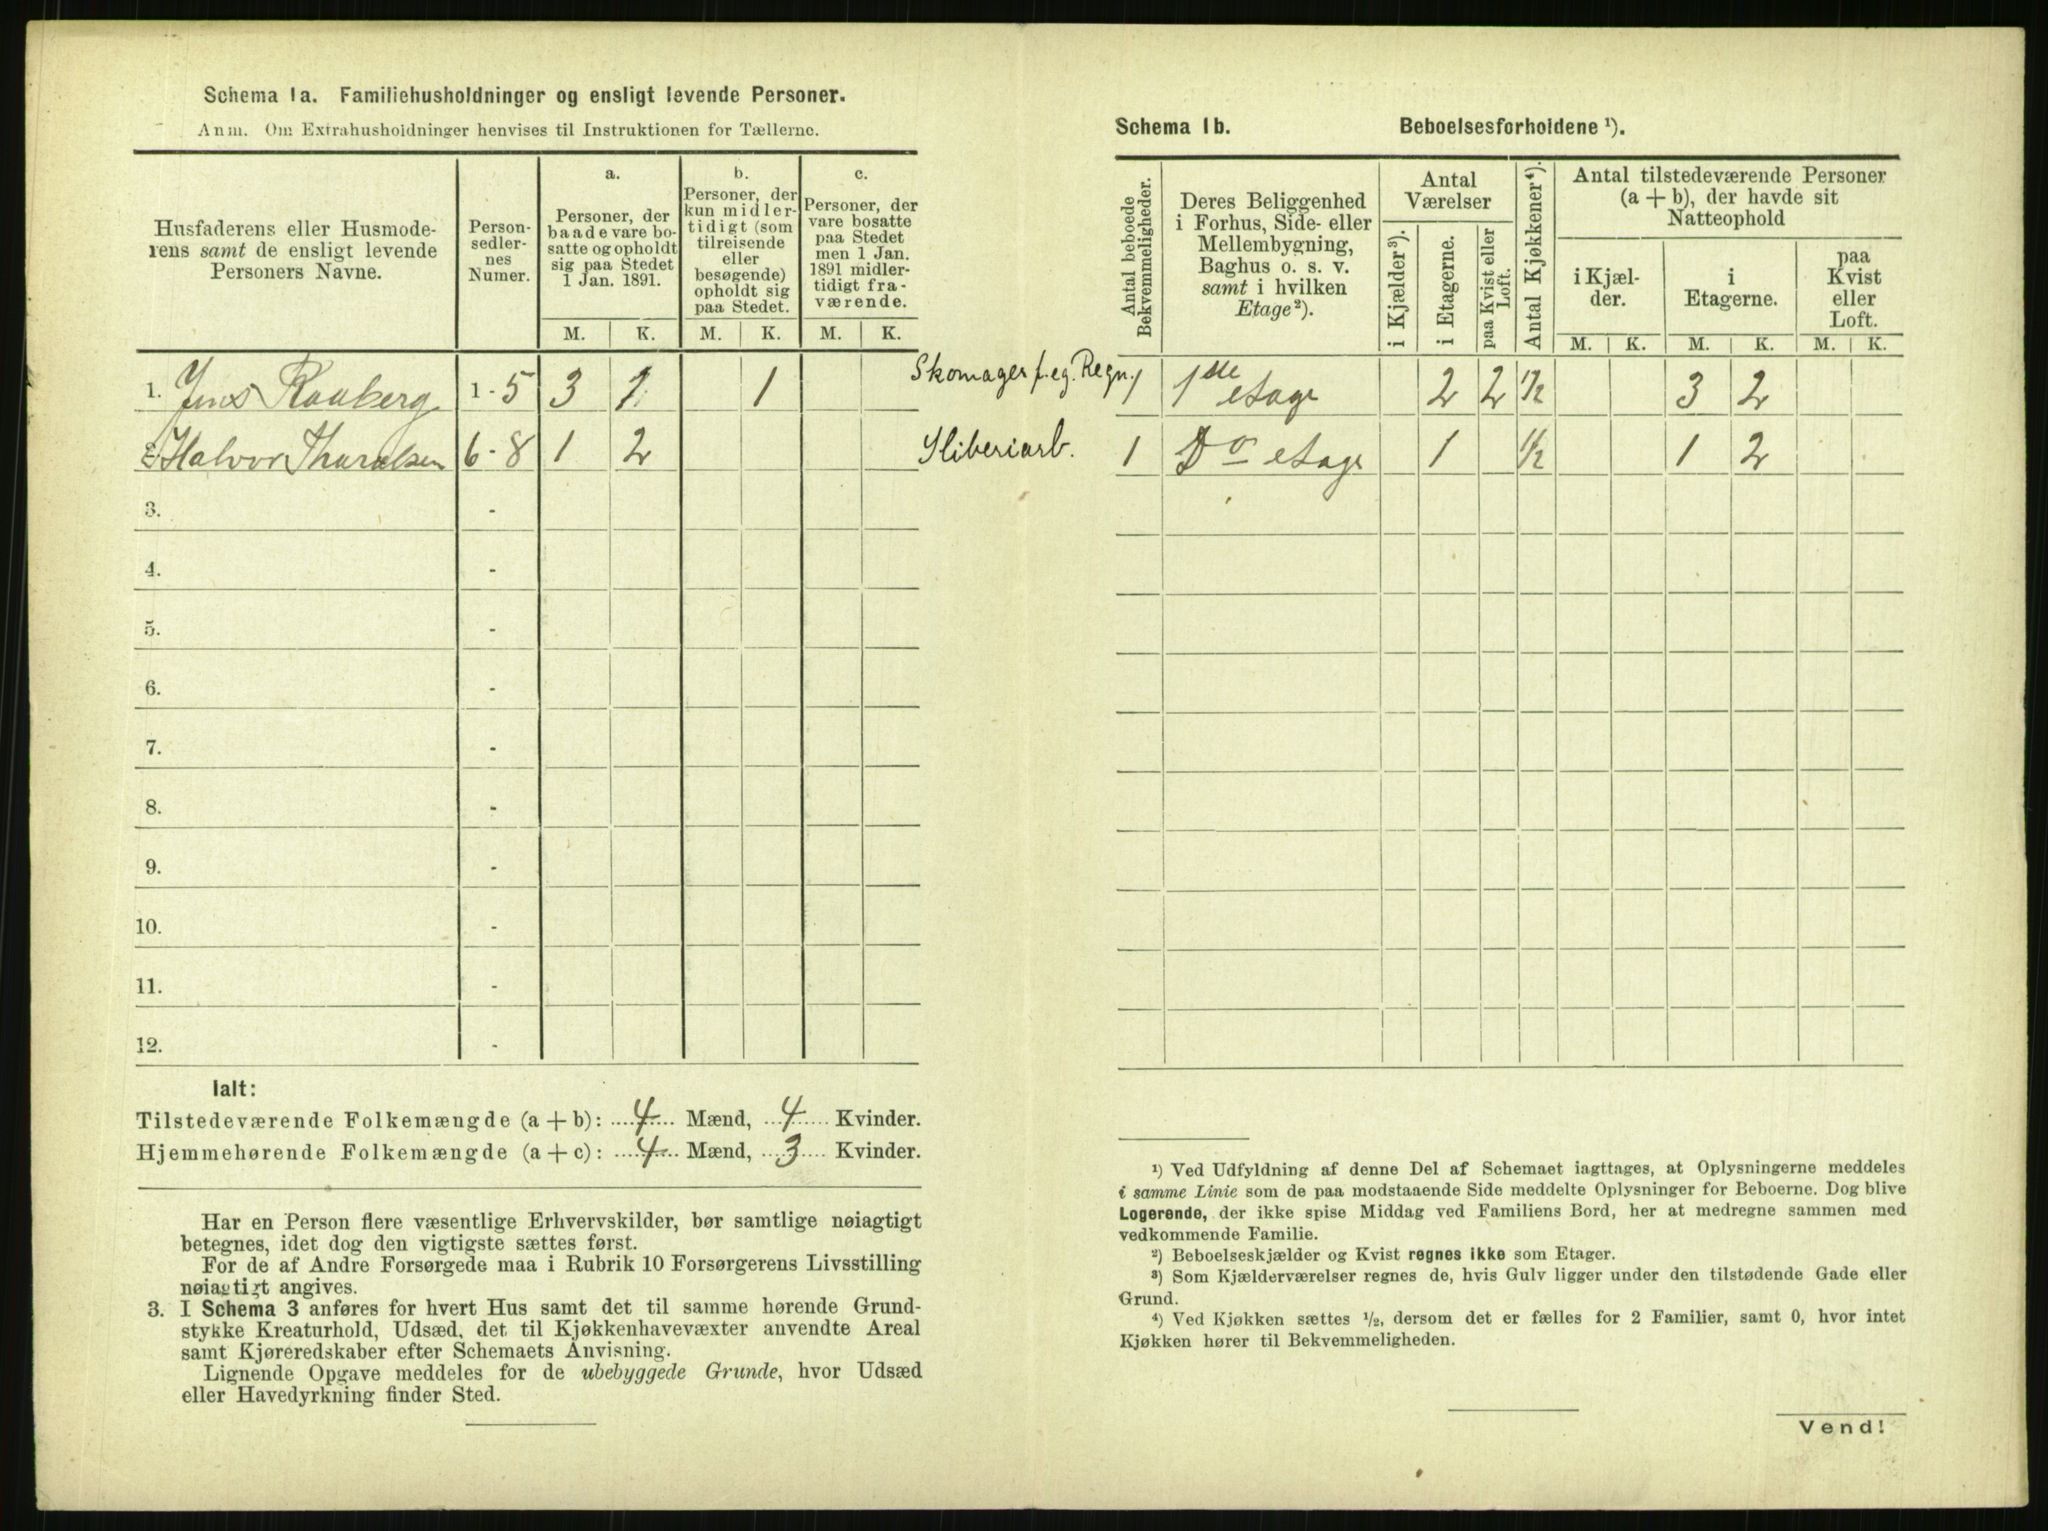 Schema 1a. Familiehusholdninger og ensligt levende Personer.
Anm. Om Extrahusholdninger henvises til Instruktionen for Tællerne.
Husfaderens eller Husmoderens samt de ensligt levende Personers Navne.
Personsedlernes Numer.
a.
Personer, der baade vare bosatte og opholdt sig paa Stedet 1 Jan. 1891.
b.
Personer, der kun midlertidigt (som tilreisende eller besøgende) opholdt sig paa Stedet.
c.
Personer, der vare bosatte paa Stedet men 1 Jan. 1891 midlertidigt fraværende.
M. K. M. K. M. K.
1. Jens Raaberg 1-5 3 1 1 Skomager f. eg. Regn.
2. Halvor Thoralsen 6-8 1 2 Sliberiarb.
3. -
4. -
5. -
6. -
7. -
8. -
9. -
10. -
11. -
12. -
Ialt:
Tilstedeværende Folkemængde (a + b): 4 Mænd, 4 Kvinder.
Hjemmehørende Folkemængde (a + c): 4 Mænd, 3 Kvinder.
Har en Person flere væsentlige Erhvervskilder, bør samtlige nøiagtigt
betegnes, idet dog den vigtigste sættes først.
For de af Andre Forsørgede maa i Rubrik 10 Forsørgerens Livsstilling
nøiagtigt angives.
3. I Schema 3 anføres for hvert Hus samt det til samme hørende Grund-
stykke Kreaturhold, Udsæd, det til Kjøkkenhavevæxter anvendte Areal
samt Kjøreredskaber efter Schemaets Anvisning.
Lignende Opgave meddeles for de ubebyggede Grunde, hvor Udsæd
eller Havedyrkning finder Sted.
Schema 1b. Beboelsesforholdene ¹).
Antal beboede Bekvemmeligheder.
Deres Beliggenhed i Forhus, Side- eller Mellembygning, Baghus o. s. v. samt i hvilken Etage²).
Antal Værelser
i Kjælder³).
i Etagerne.
paa Kvist eller Loft.
Antal Kjøkkener⁴).
Antal tilstedeværende Personer (a + b), der havde sit Natteophold
i Kjælder.
i Etagerne.
paa Kvist eller Loft.
M. K. M. K. M. K.
1 1ste etage 2 2 1/2 3 2
1 Do etage 1 1/2 1 2
¹) Ved Udfyldning af denne Del af Schemaet iagttages, at Oplysningerne meddeles
i samme Linie som de paa modstaaende Side meddelte Oplysninger for Beboerne. Dog blive
Logerende, der ikke spise Middag ved Familiens Bord, her at medregne sammen med
vedkommende Familie.
²) Beboelseskjælder og Kvist regnes ikke som Etager.
³) Som Kjælderværelser regnes de, hvis Gulv ligger under den tilstødende Gade eller
Grund.
⁴) Ved Kjøkken sættes ½, dersom det er fælles for 2 Familier, samt 0, hvor intet
Kjøkken hører til Bekvemmeligheden.
Vend!